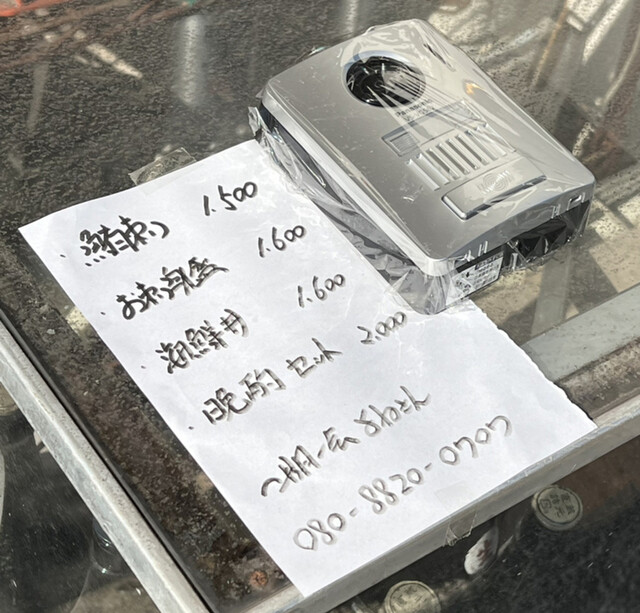 ・ 1.500
・お刺身盛 1.600
・海鮮丼 1.600
・晩酌セット 2.000
一期一会
080-8820-0707